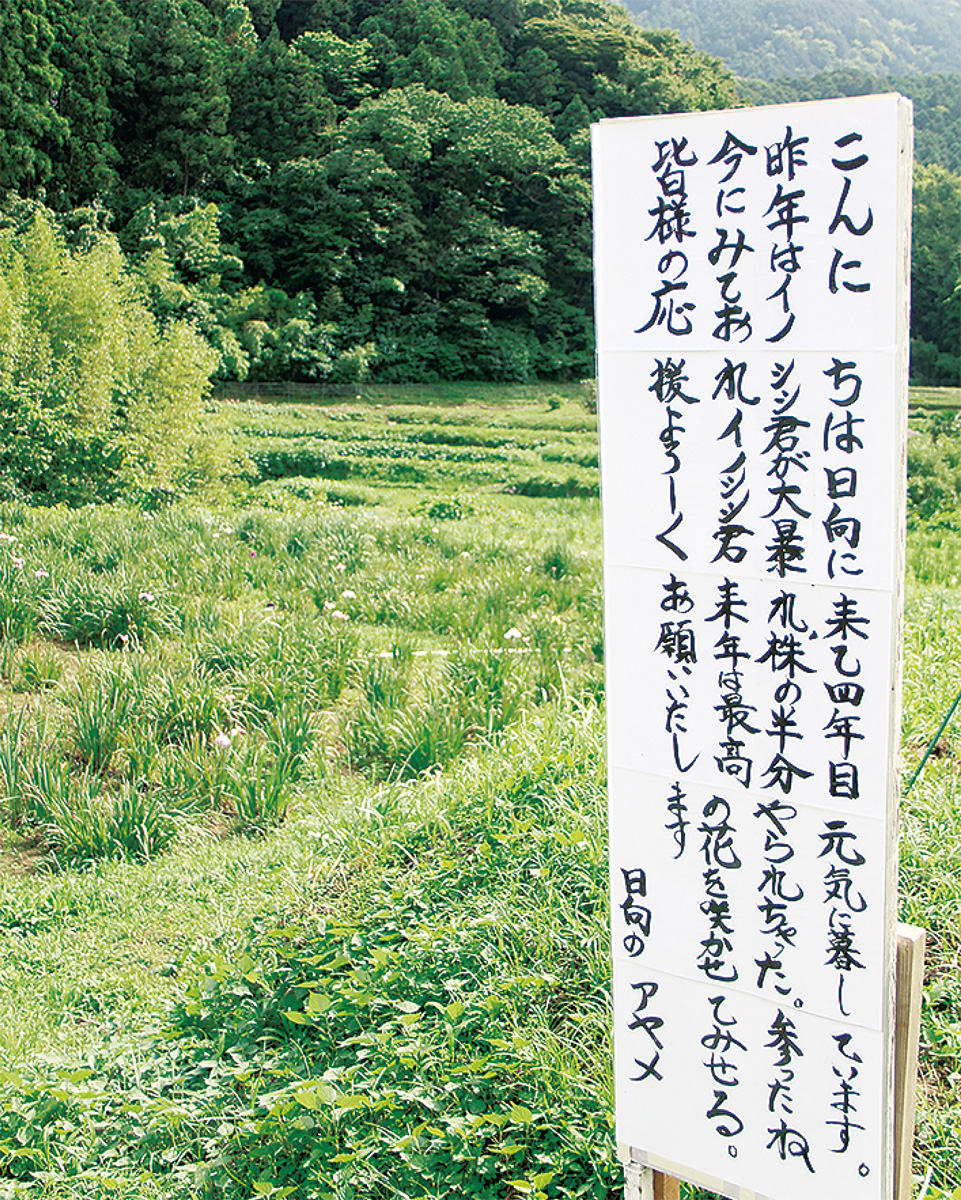 こんにちは日向に来て四年目元気に暮しています。
昨年はイノシシ君が大暴れ、株の半分やられちゃった。参ったね
今にみておれイノシシ君来年は最高の花を咲かせてみせる。
皆様の応援よろしくお願いいたします
日向のアヤメ